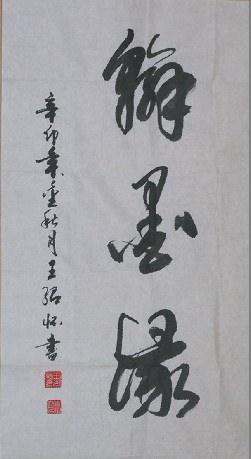 翰墨缘
辛卯年金秋月王张怀书